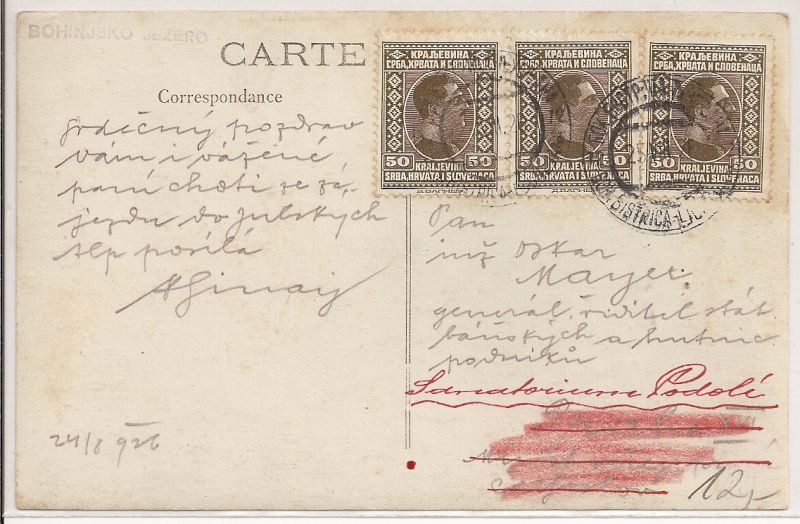 BOHINJSKO JEZERO
CARTE
Correspondance
КРАЉЕВИНА
СРБА, ХРВАТА И СЛОВЕНАЦА
50 50
KRALJEVINA
SRBA, HRVATA I SLOVENACA
КРАЉЕВИНА
СРБА, ХРВАТА И СЛОВЕНАЦА
50 50
KRALJEVINA
SRBA, HRVATA I SLOVENACA
КРАЉЕВИНА
СРБА, ХРВАТА И СЛОВЕНАЦА
50 50
KRALJEVINA
SRBA, HRVATA I SLOVENACA
BISTRICA-
BISTRICA-
Srdečný pozdrav
vám i vážené
paní choti ze zá-
jezdu do Julských
Alp posílá
24/8 926
Pan
inž Oskar
Mayer
generál. ředitel stát
báňských a hutnic
podniků
Sanatorium Podolí
12,-